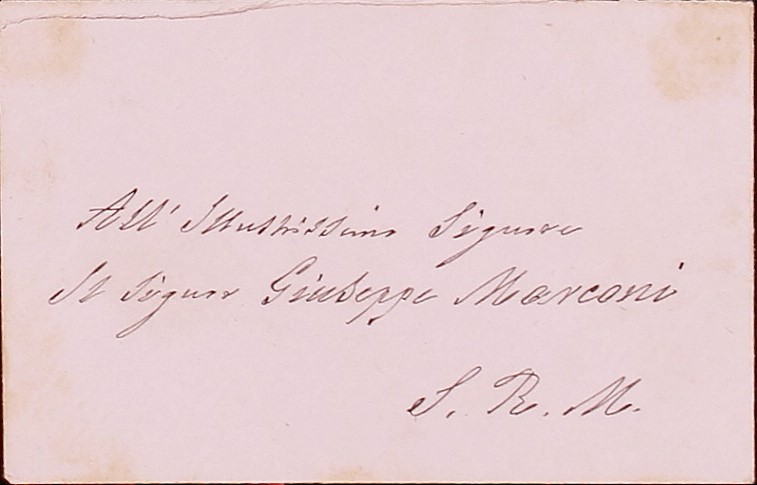 All' Illustrissimo Signore
Il Signor Giuseppe Marconi
S. R. M.